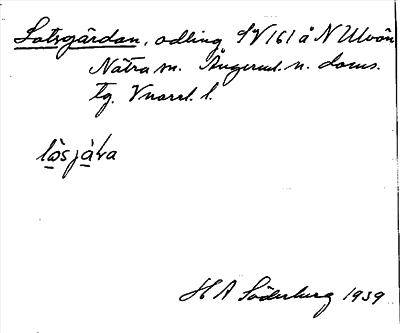 Lotsgärdan, odling SV 161 å N Ulvön
Nätra sn. Ångerml. n. doms.
tg. Vnorrl. l.
H A Söderberg 1939